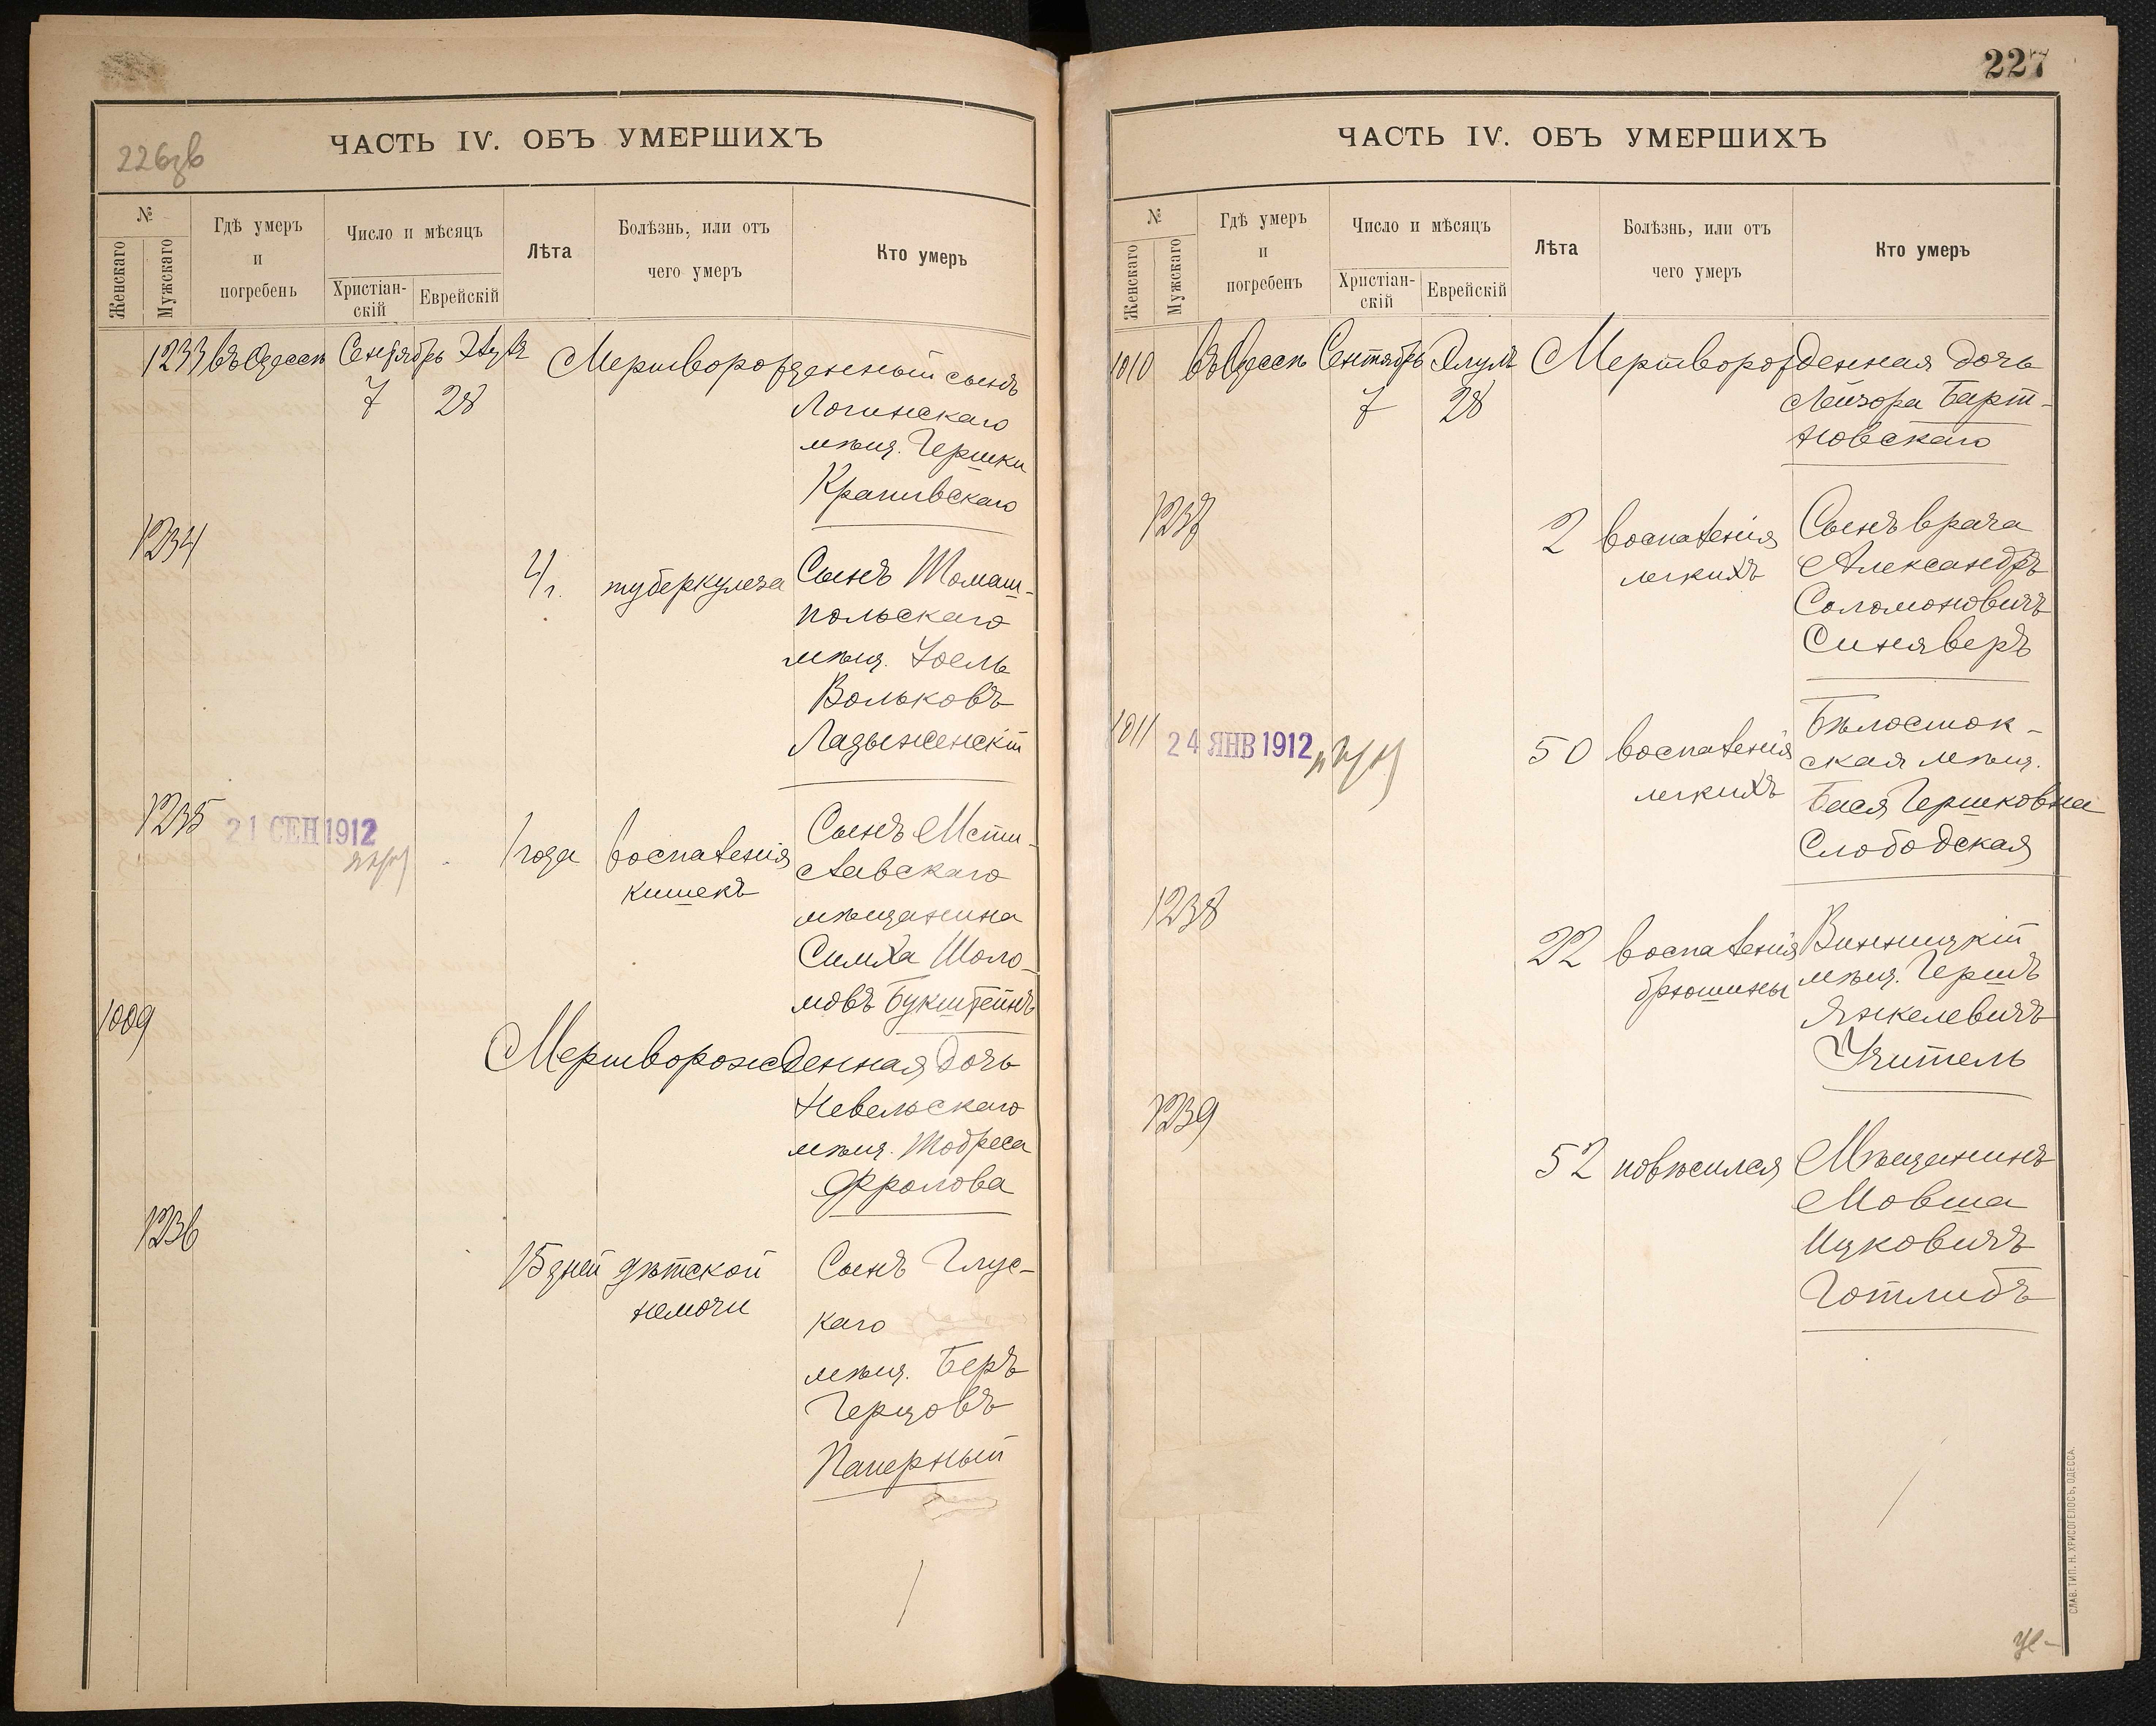 226зв
ЧАСТЬ IV. ОБЪ УМЕРШИХЪ
№
Женскаго
Мужскаго
Гдѣ умеръ
и
погребенъ
Число и мѣсяцъ
Христіан-
скій
Еврейскій
Лѣта
Болѣзнь, или отъ
чего умеръ
Кто умеръ
1233 въ Одессѣ Сентябрь Элулъ Мертворожденный сынъ
7 28 Логинскаго
мѣщ. Гершки
Крапивскаго
1234
4 г. туберкулеза Сынъ Томаш-
польскаго
мѣщ. Іоель
Вольковъ
Ладыженскій
1235 21 СЕН 1912
1 года воспаленія Сынъ Мсти-
кишекъ славскаго
мѣщанина
Симха Шоло-
мовъ Букштейнъ
1009
Мертворожденная дочь
Невельскаго
мѣщ. Тодреса
Фролова
1236
15 дней дѣтской Сынъ Глус-
немочи каго
мѣщ. Беръ
Герцовъ
Паперный
227
ЧАСТЬ IV. ОБЪ УМЕРШИХЪ
№
Женскаго
Мужскаго
Гдѣ умеръ
и
погребенъ
Число и мѣсяцъ
Христіан-
скій
Еврейскій
Лѣта
Болѣзнь, или отъ
чего умеръ
Кто умеръ
1010 въ Одессѣ Сентябрь Элулъ Мертворожденная дочь
7 28 Лейзора Барт-
новскаго
1237
2 воспаленія Сынъ врача
легкихъ Александръ
Соломоновичъ
Синяверъ
1011 24 ЯНВ 1912
50 воспаленія Бѣлосток-
легкихъ ская мѣщ.
Бася Гершковна
Слободская
1238
22 воспаленія Винницкій
брюшины мѣщ. Гершъ
Янкелевичъ
Учитель
1239
52 повѣсился Мѣщанинъ
Мовша
Ицковичъ
Готлибъ
СЛАВ. ТИП. Н. ХРИСОГЕЛОСЪ, ОДЕССА.